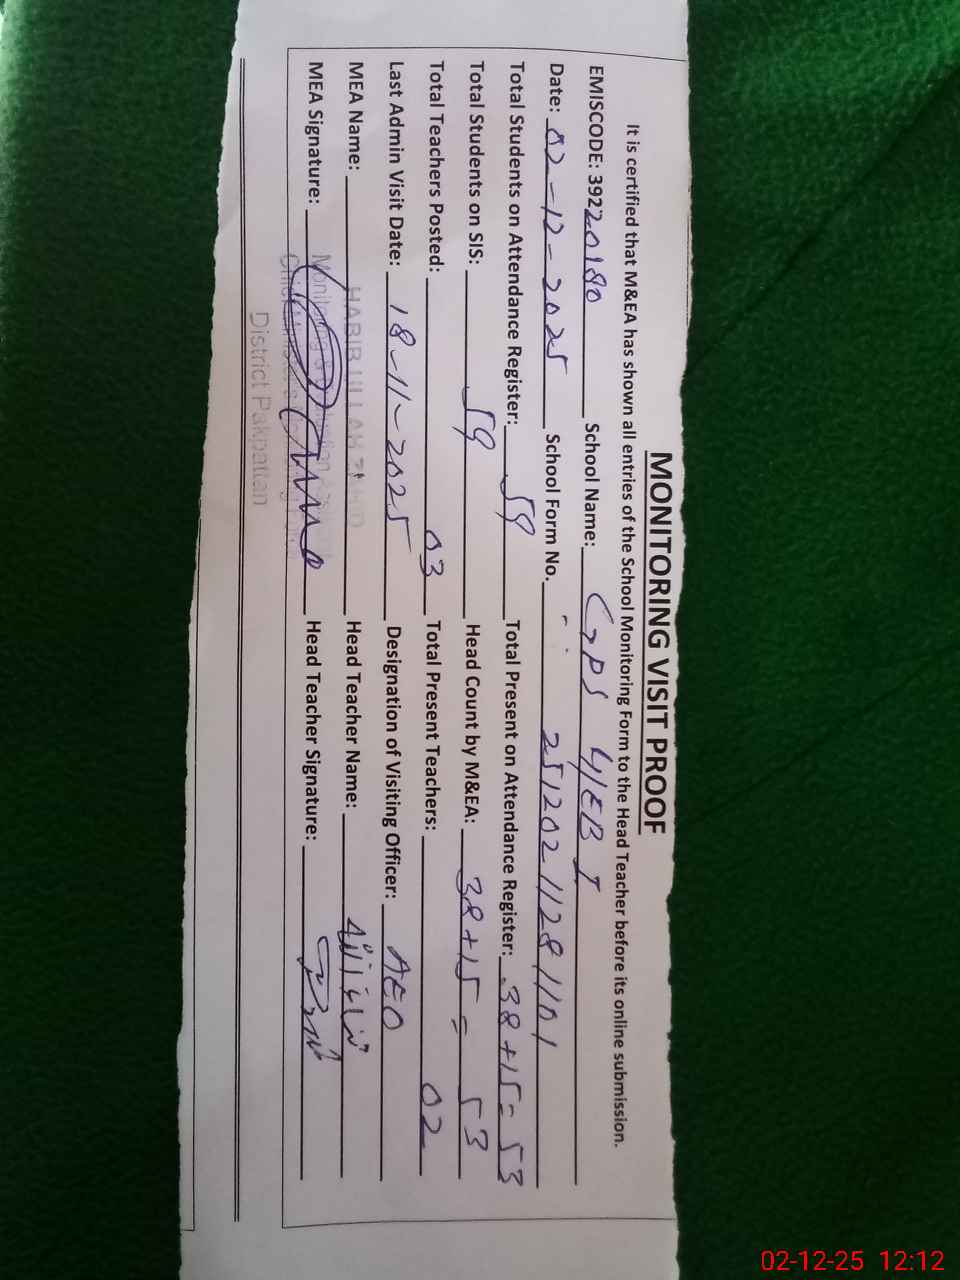 MONITORING VISIT PROOF
It is certified that M&EA has shown all entries of the School Monitoring Form to the Head Teacher before its online submission.
EMISCODE: 39220180 School Name: GPS 4/EB I
Date: 02-12-2025 School Form No. 25120211281101
Total Students on Attendance Register: 59 Total Present on Attendance Register: 38+15=53
Total Students on SIS: 59 Head Count by M&EA: 38+15=53
Total Teachers Posted: 03 Total Present Teachers: 02
Last Admin Visit Date: 18-11-2025 Designation of Visiting Officer: AEO
MEA Name: HABIB ULLAH Head Teacher Name:
MEA Signature: Head Teacher Signature:
Monitoring
District Pakpattan
02-12-25 12:12